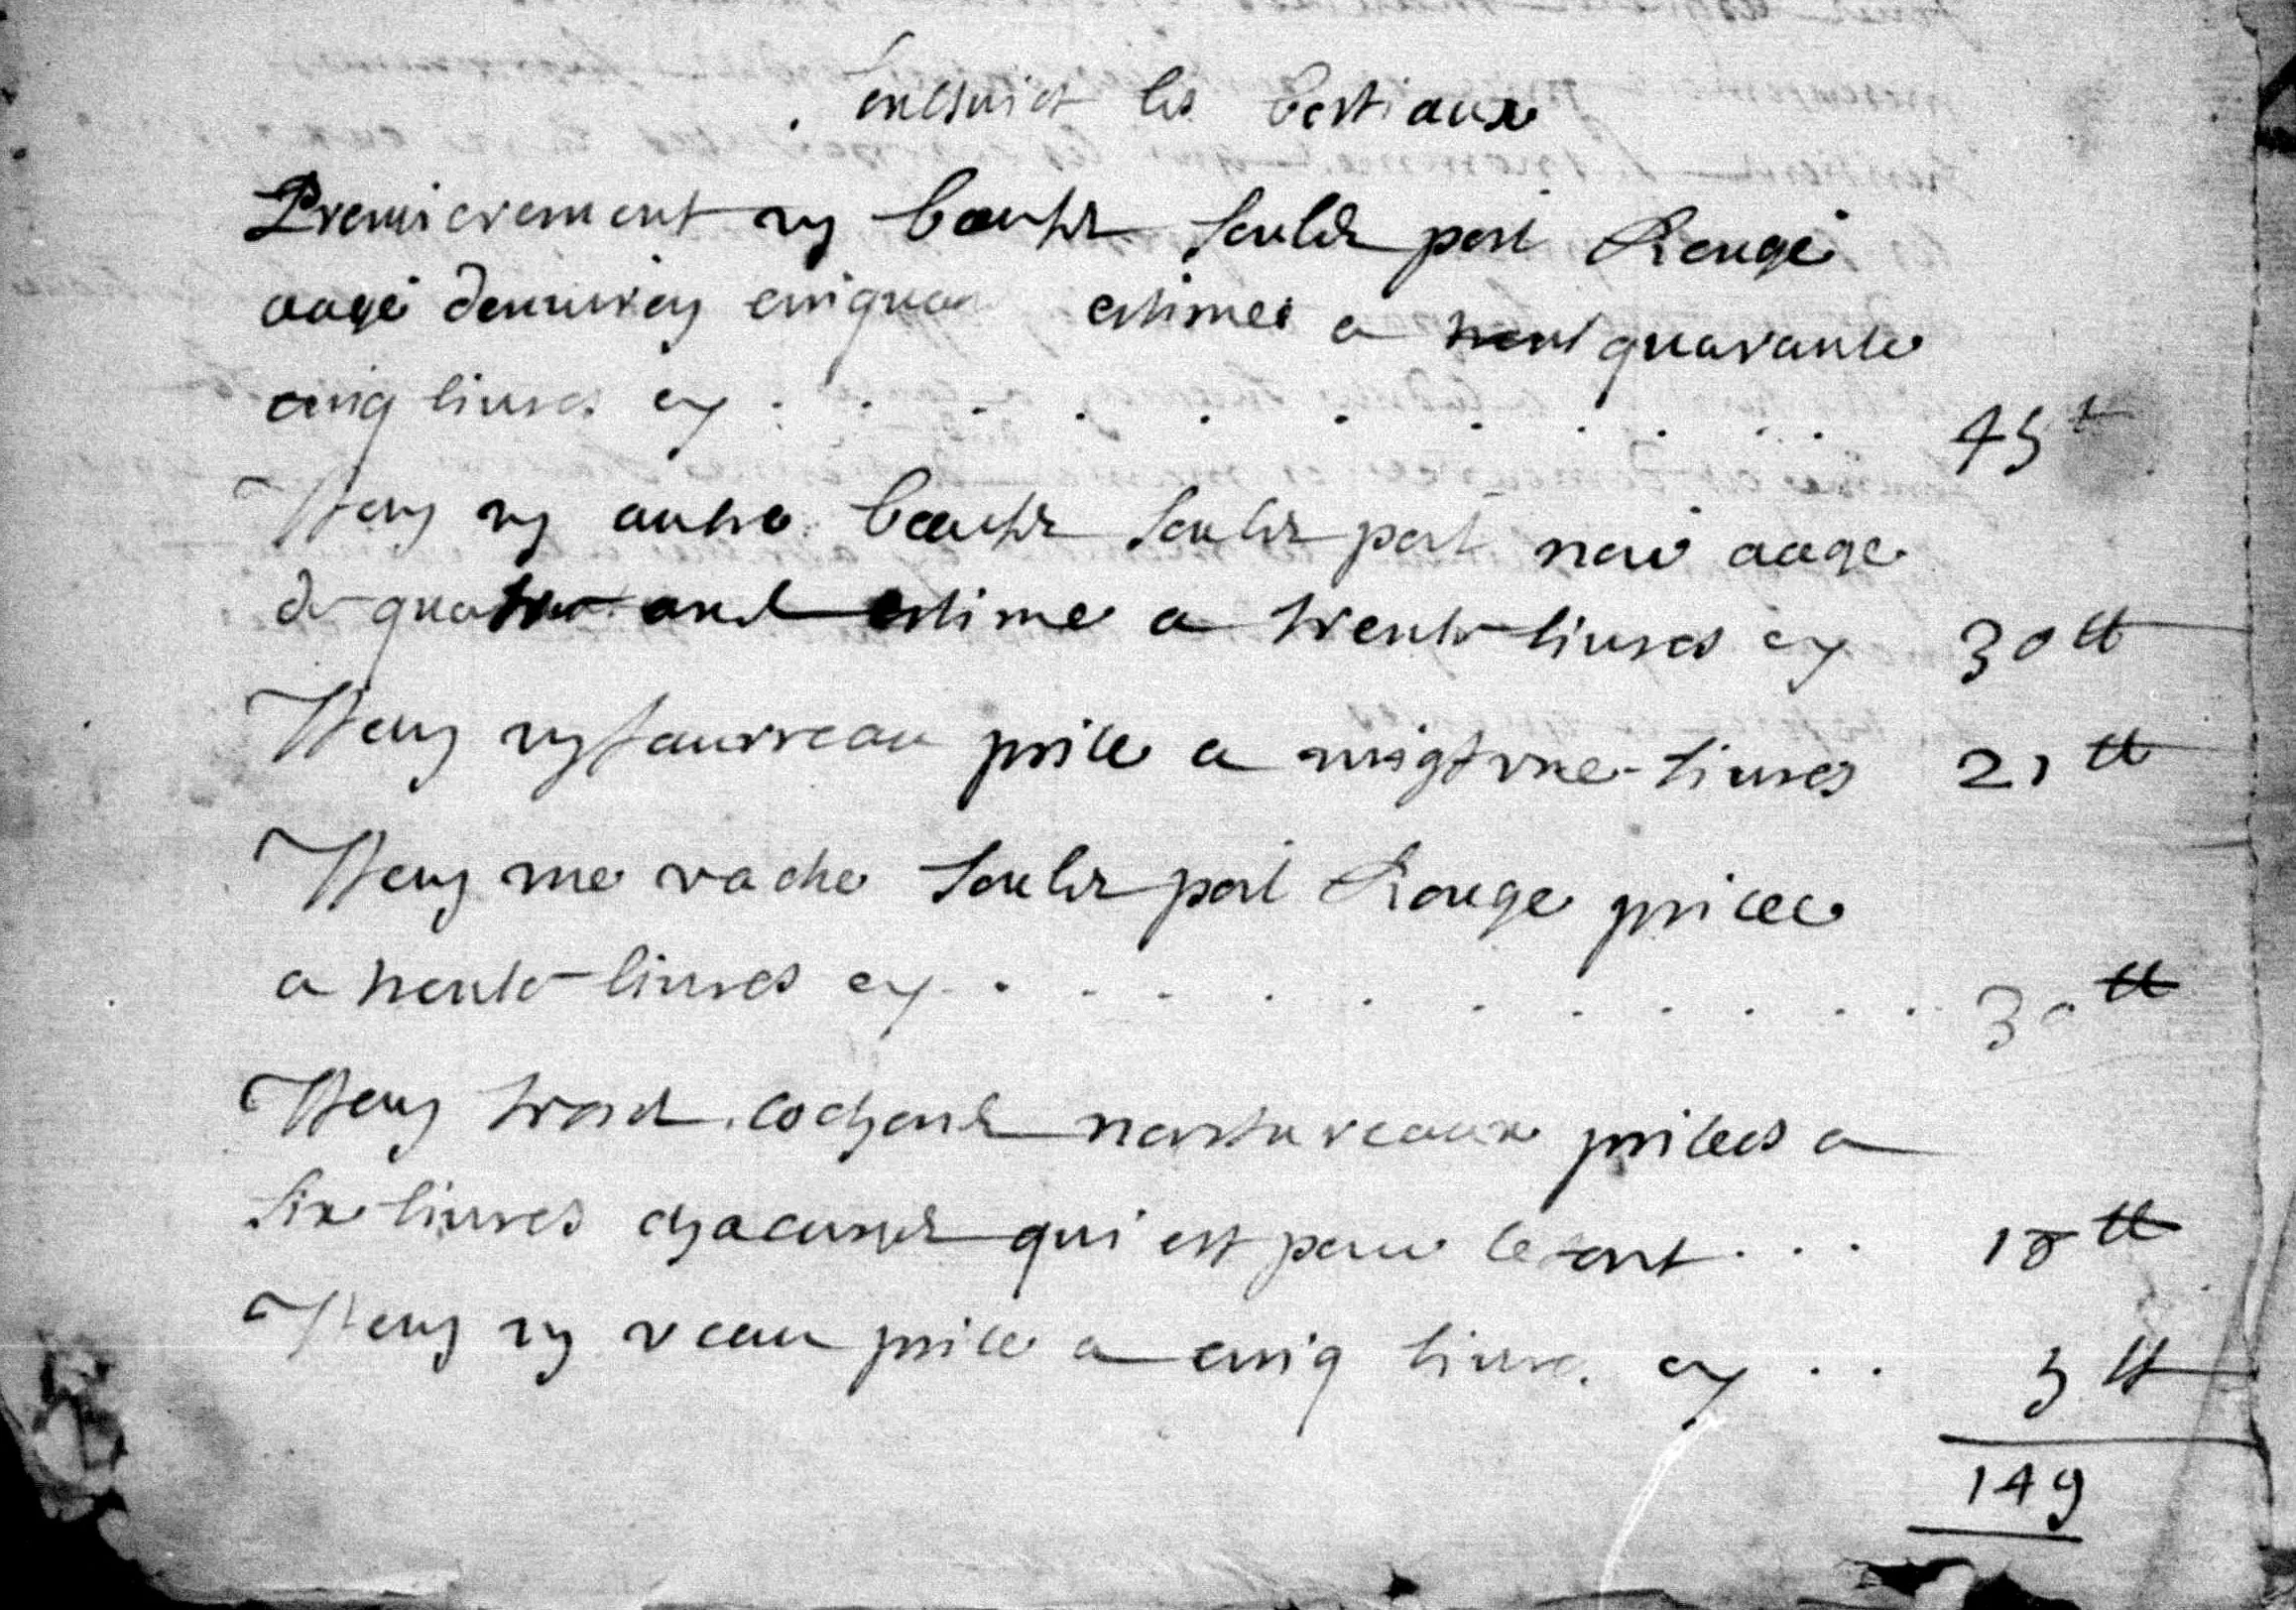 Ensuict les bestiaux
Premierement un boeuf soubz poil Rouge
aagé denviron cinq ans estimé a trent quarante
cinq livres cy . . . . . . . . . . . 45 ₶
Item un autre boeuf soubz poil noir aagé
de quatre ans estimé a trente livres cy 30 ₶
Item un taurreau prisé a vingt une livres 21 ₶
Item une vache soubz poil Rouge prisee
a trente livres cy . . . . . . . . . . . 30 ₶
Item trois cochons nortureaux prisees a
six livres chacuns qui est pour le tout . . . 18 ₶
Item un veau prisé a cinq livres cy . . 5 ₶
149